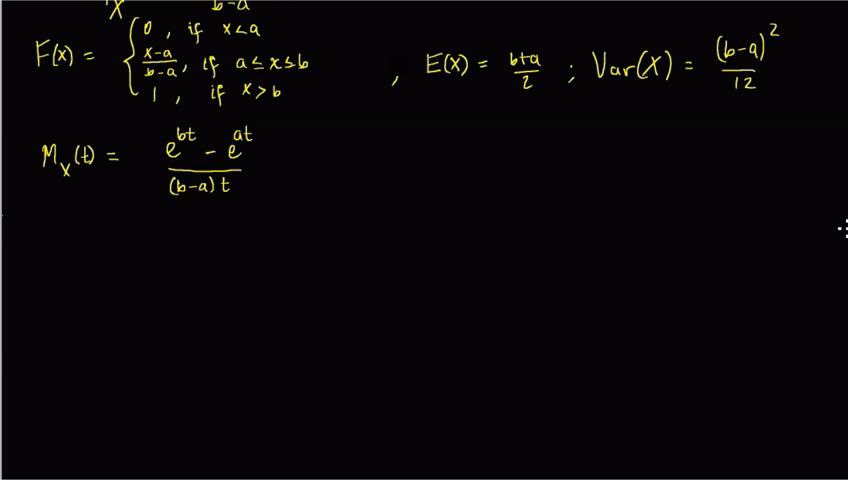 X b-a
F(x) = { 0 , if x<a
x-a / b-a , if a ≤ x ≤ b
1 , if x > b
, E(X) = b+a / 2 ; Var(X) = (b-a)^2 / 12
M_X(t) = e^bt - e^at / (b-a) t